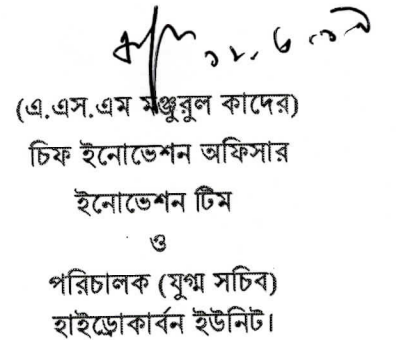 ১৮.৬.১৯
(এ.এস.এম মঞ্জুরুল কাদের)
চিফ ইনোভেশন অফিসার
ইনোভেশন টিম
ও
পরিচালক (যুগ্ম সচিব)
হাইড্রোকার্বন ইউনিট।